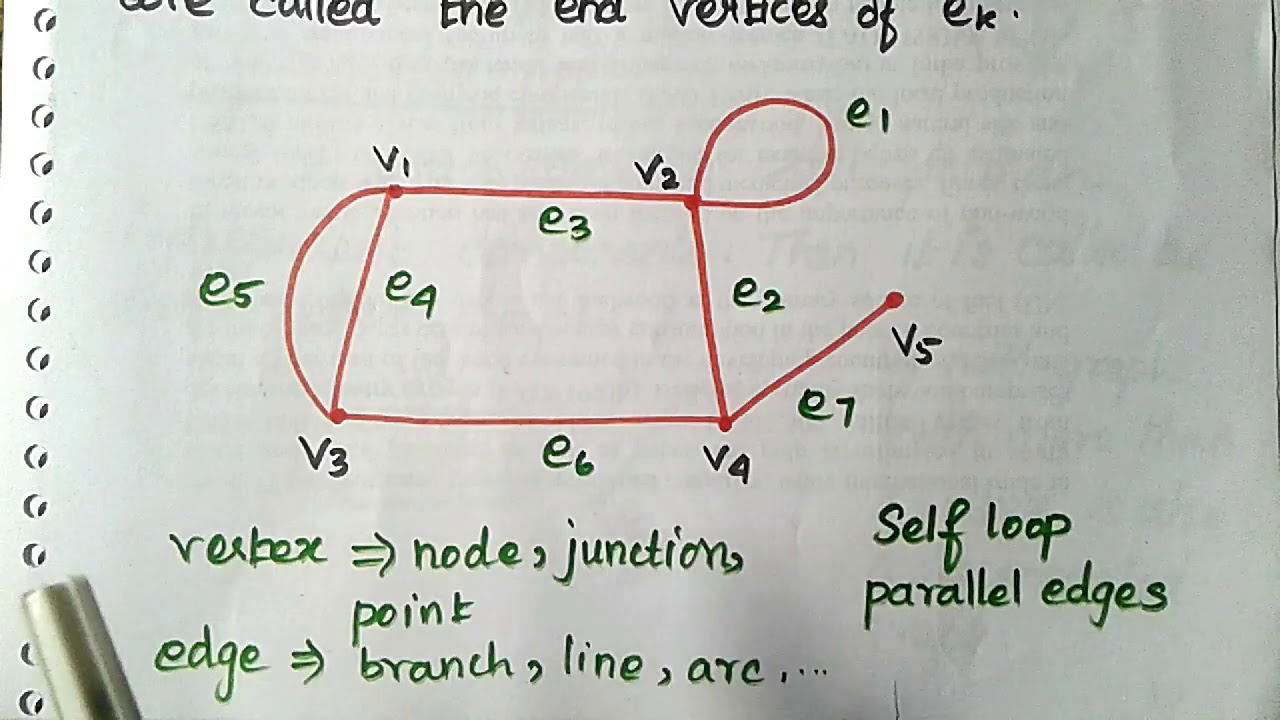 called the end vertices of ek.
e1
v1
v2
e3
e5
e4
e2
v5
e7
v3
e6
v4
vertex ⇒ node, junction,
point
edge ⇒ branch, line, arc, ...
Self loop
parallel edges